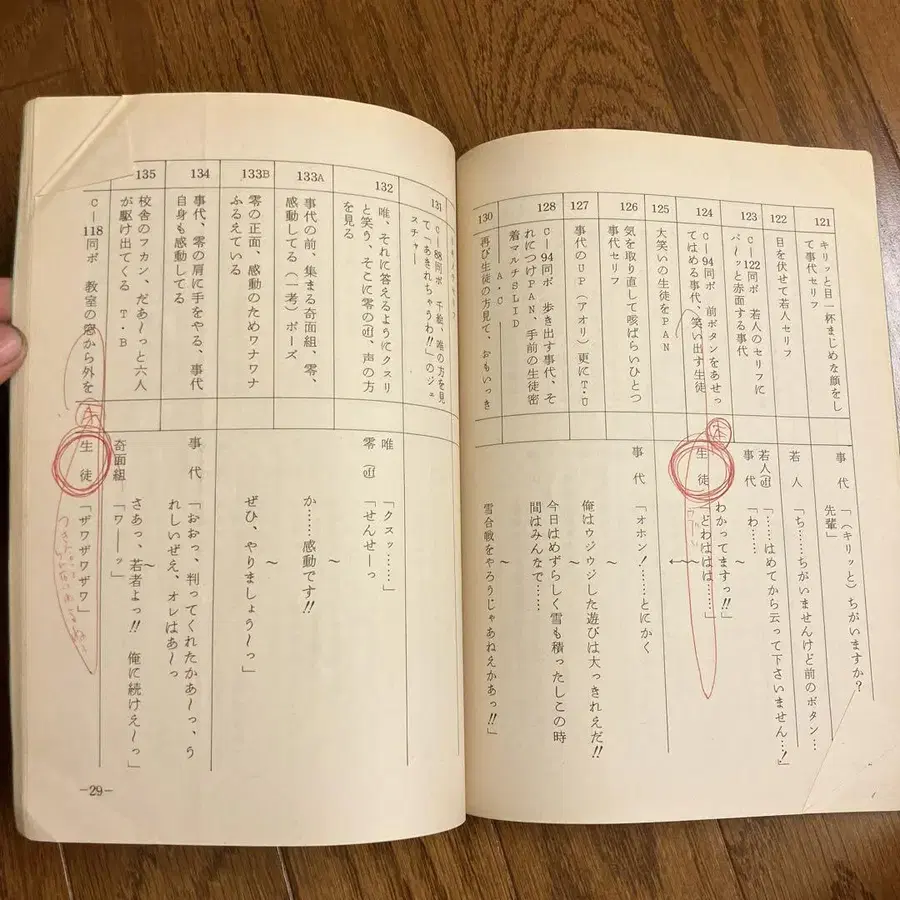 121
キリッと目一杯まじめな顔をし
て事代セリフ
事代
「(キリッと)ちがいますか?
先輩」
122
目を伏せて若人セリフ
若人
「ち……ちがいませんけど前のボタン…
123
C―122同ポ 若人のセリフに
パーッと赤面する事代
若人(off)
「……はめてから云って下さいません…!」
事代
「わ……
124
C―94同ポ 前ボタンをあせっ
てはめる事代、笑い出す生徒
わかってますっ!!」
生徒
「どわははは……」
125
大笑いの生徒をPAN
126
気を取り直して咳ばらいひとつ
事代セリフ
事代
「オホン!……とにかく
127
事代のUP(アオリ)更にT・U
俺はウジウジした遊びは大っきれえだ!!
128
C―94同ポ 歩き出す事代、そ
れにつけPAN、手前の生徒密
着マルチSLID
今日はめずらしく雪も積ったしこの時
間はみんなで……
―A・C―
130
再び生徒の方見て、おもいっき
雪合戦をやろうじゃあねえかあっ!!」
131
C―88同ポ 千絵、唯の方を見
て「あきれちゃうわ!!」のジェ
スチャー
132
唯、それに答えるようにクスリ
と笑う、そこに零のoff、声の方
を見る
唯
「クスッ……」
零(off)
「せんせーっ
133A
事代の前、集まる奇面組、零、
感動してる(一考)ポーズ
か……感動です!!
133B
零の正面、感動のためワナワナ
ふるえている
ぜひ、やりましょう〜っ」
134
事代、零の肩に手をやる、事代
自身も感動してる
事代
「おおっ、判ってくれたかあ〜っ、う
れしいぜえ、オレはあ〜っ
135
校舎のフカン、だあ〜っと六人
が駆け出てくる T・B
さあっ、若者よっ!! 俺に続けえ〜っ」
奇面組
「ワ――ッ」
C―118同ポ 教室の窓から外を
生徒
「ザワザワザワ」
―29―